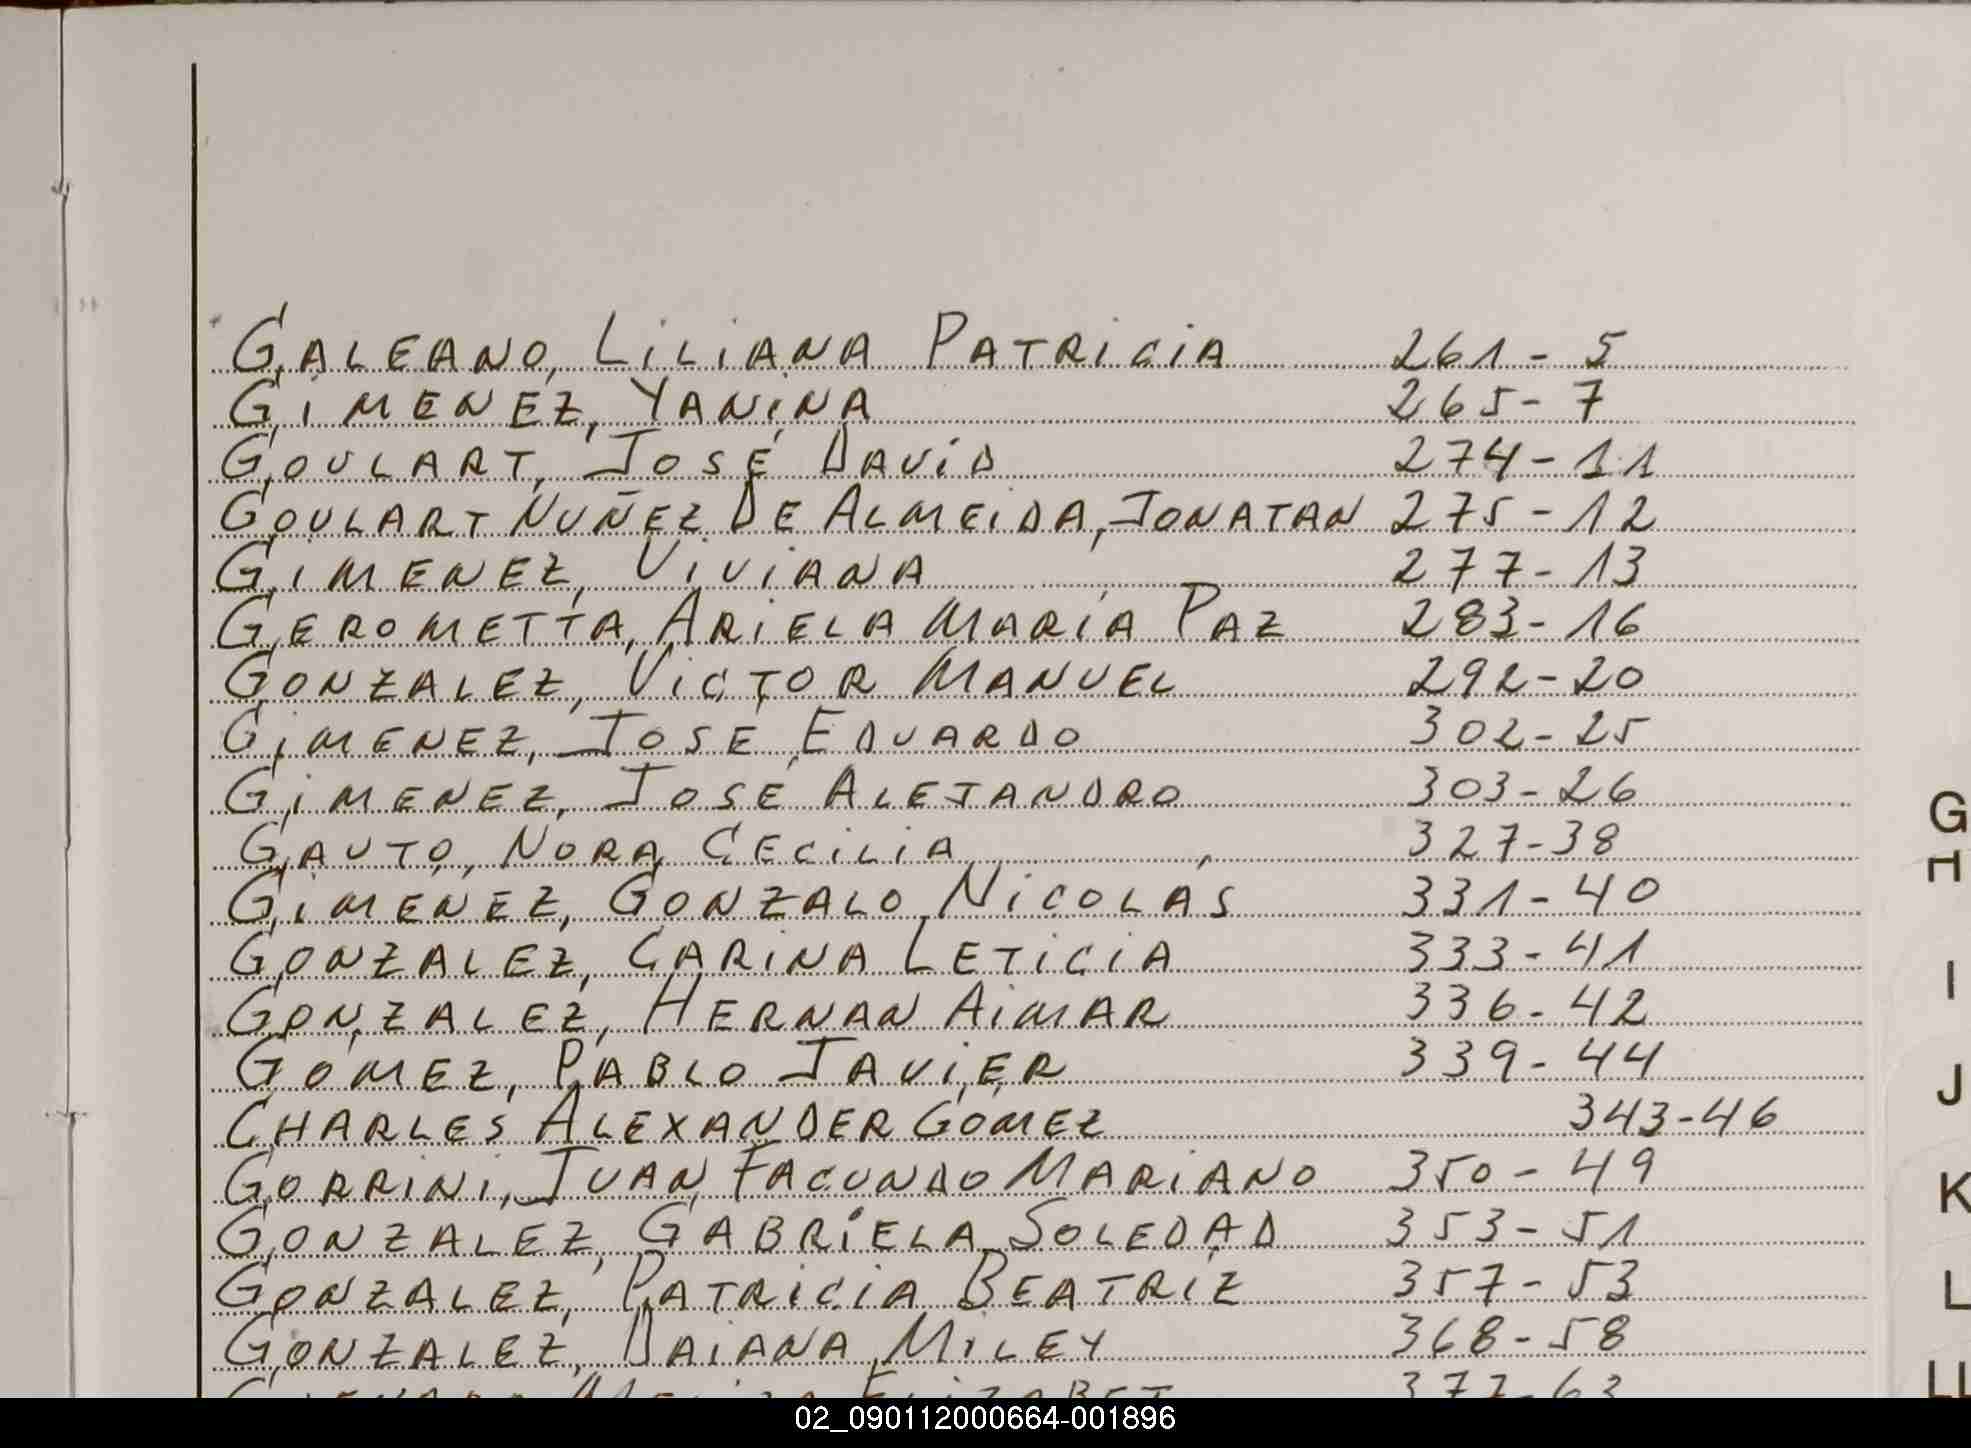 GALEANO, LILIANA PATRICIA 261-5
GIMENEZ, YANINA 265-7
GOULART, JOSÉ DAVID 274-11
GOULART NUÑEZ DE ALMEIDA, JONATAN 275-12
GIMENEZ, VIVIANA 277-13
GEROMETTA, ARIELA MARÍA PAZ 283-16
GONZALEZ, VICTOR MANUEL 292-20
GIMENEZ, JOSE EDUARDO 302-25
GIMENEZ, JOSÉ ALEJANDRO 303-26
GAUTO, NORA CECILIA 327-38
GIMENEZ, GONZALO NICOLÁS 331-40
GONZALEZ, CARINA LETICIA 333-41
GONZALEZ, HERNAN AIMAR 336-42
GOMEZ, PABLO JAVIER 339-44
CHARLES ALEXANDER GOMEZ 343-46
GORRINI, JUAN FACUNDO MARIANO 350-49
GONZALEZ, GABRIELA SOLEDAD 353-51
GONZALEZ, PATRICIA BEATRIZ 357-53
GONZALEZ, DAIANA MILEY 368-58
ELIZABET 377-63
G
H
I
J
K
L
LL
02_090112000664-001896